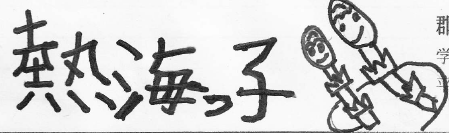 熱海っ子
郡
学